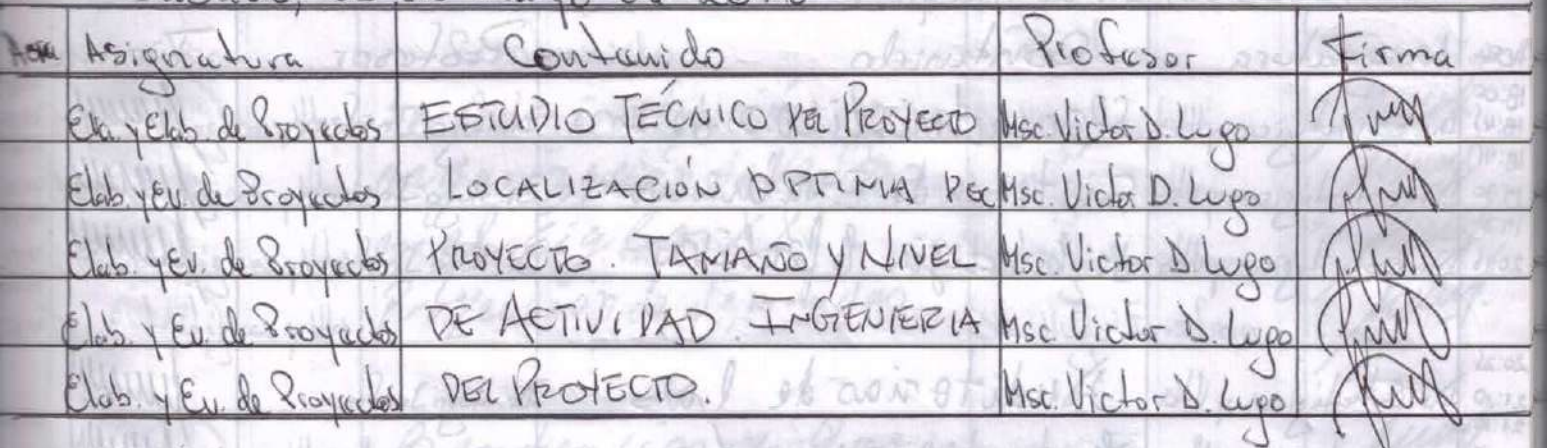 Asignatura Contenido Profesor Firma
Ela. y Elab. de Proyectos ESTUDIO TÉCNICO DEL PROYECTO Msc. Victor D. Lugo
Elab. y Ev. de Proyectos LOCALIZACIÓN OPTIMA DEL Msc. Victor D. Lugo
Elab. y Ev. de Proyectos PROYECTO. TAMAÑO Y NIVEL Msc. Victor D. Lugo
Elab. y Ev. de Proyectos DE ACTIVIDAD. INGENIERIA Msc. Victor D. Lugo
Elab. y Ev. de Proyectos DEL PROYECTO. Msc. Victor D. Lugo